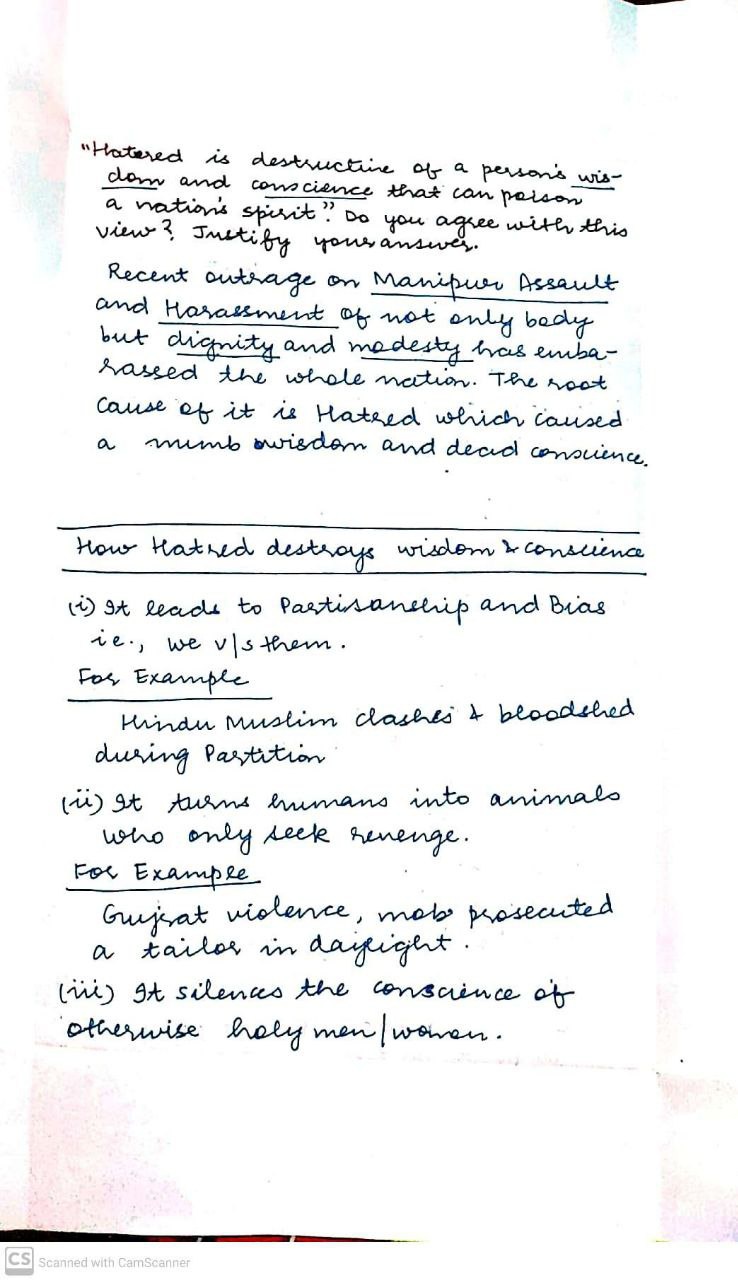 "Hatered is destructive of a person's wis-
dom and conscience that can poison
a nation's spirit". Do you agree with this
view? Justify your answer.
Recent outrage on Manipur Assault
and Harassment of not only body
but dignity and modesty has emba-
rassed the whole nation. The root
cause of it is Hatred which caused
a numb wisdom and dead conscience.
How Hatred destroys wisdom & conscience
(i) It leads to Partisanship and Bias
i.e., we v/s them.
For Example
Hindu Muslim clashes & bloodshed
during Partition
(ii) It turns humans into animals
who only seek revenge.
For Example
Gujrat violence, mob prosecuted
a tailor in daylight.
(iii) It silences the conscience of
otherwise holy men/women.
CS Scanned with CamScanner